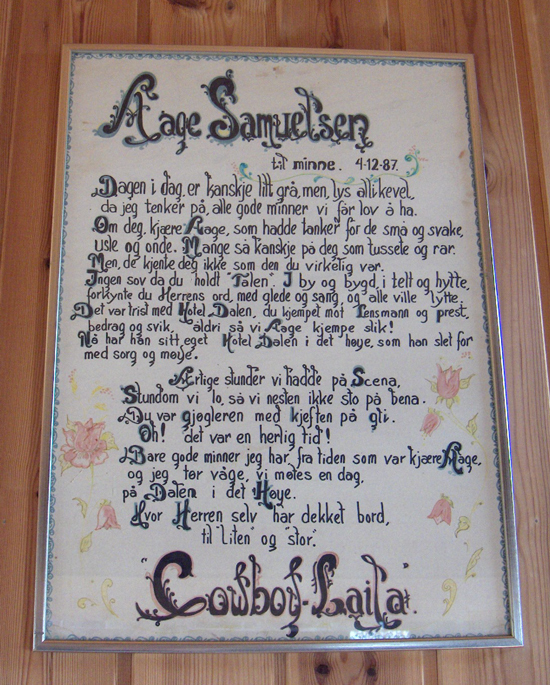 Aage Samuelsen
til minne. 4-12-87.
Dagen i dag, er kanskje litt grå, men, lys allikevel,
da jeg tenker på, alle gode minner vi får lov å ha.
Om deg, kjære Aage, som hadde tanker for de små og svake,
usle og onde. Mange så kanskje på deg som tussete og rar.
Men, de kjente deg ikke som den du virkelig var.
Ingen sov da du holdt "Talen". I by og bygd, i telt og hytte,
forkynte du Herrens ord, med glede og sang, og alle ville lytte.
Det var trist med Hotel Dalen, du kjempet mot Lensmann og prest,
bedrag og svik, aldri så vi Aage kjempe slik!
Nå har han sitt eget Hotel Dalen i det høye, som han slet for
med sorg og møye.
Ærlige stunder vi hadde på Scena,
Stundom vi lo, så vi nesten ikke sto på bena.
Du var gjøgleren med kjeften på gli.
Oh! det var en herlig tid!
Bare gode minner jeg har, fra tiden som var kjære Aage,
og jeg tør våge, vi møtes en dag,
på Dalen i det Høye.
Hvor Herren selv har dekket bord,
til "liten og stor".
"Cowboy-Laila".